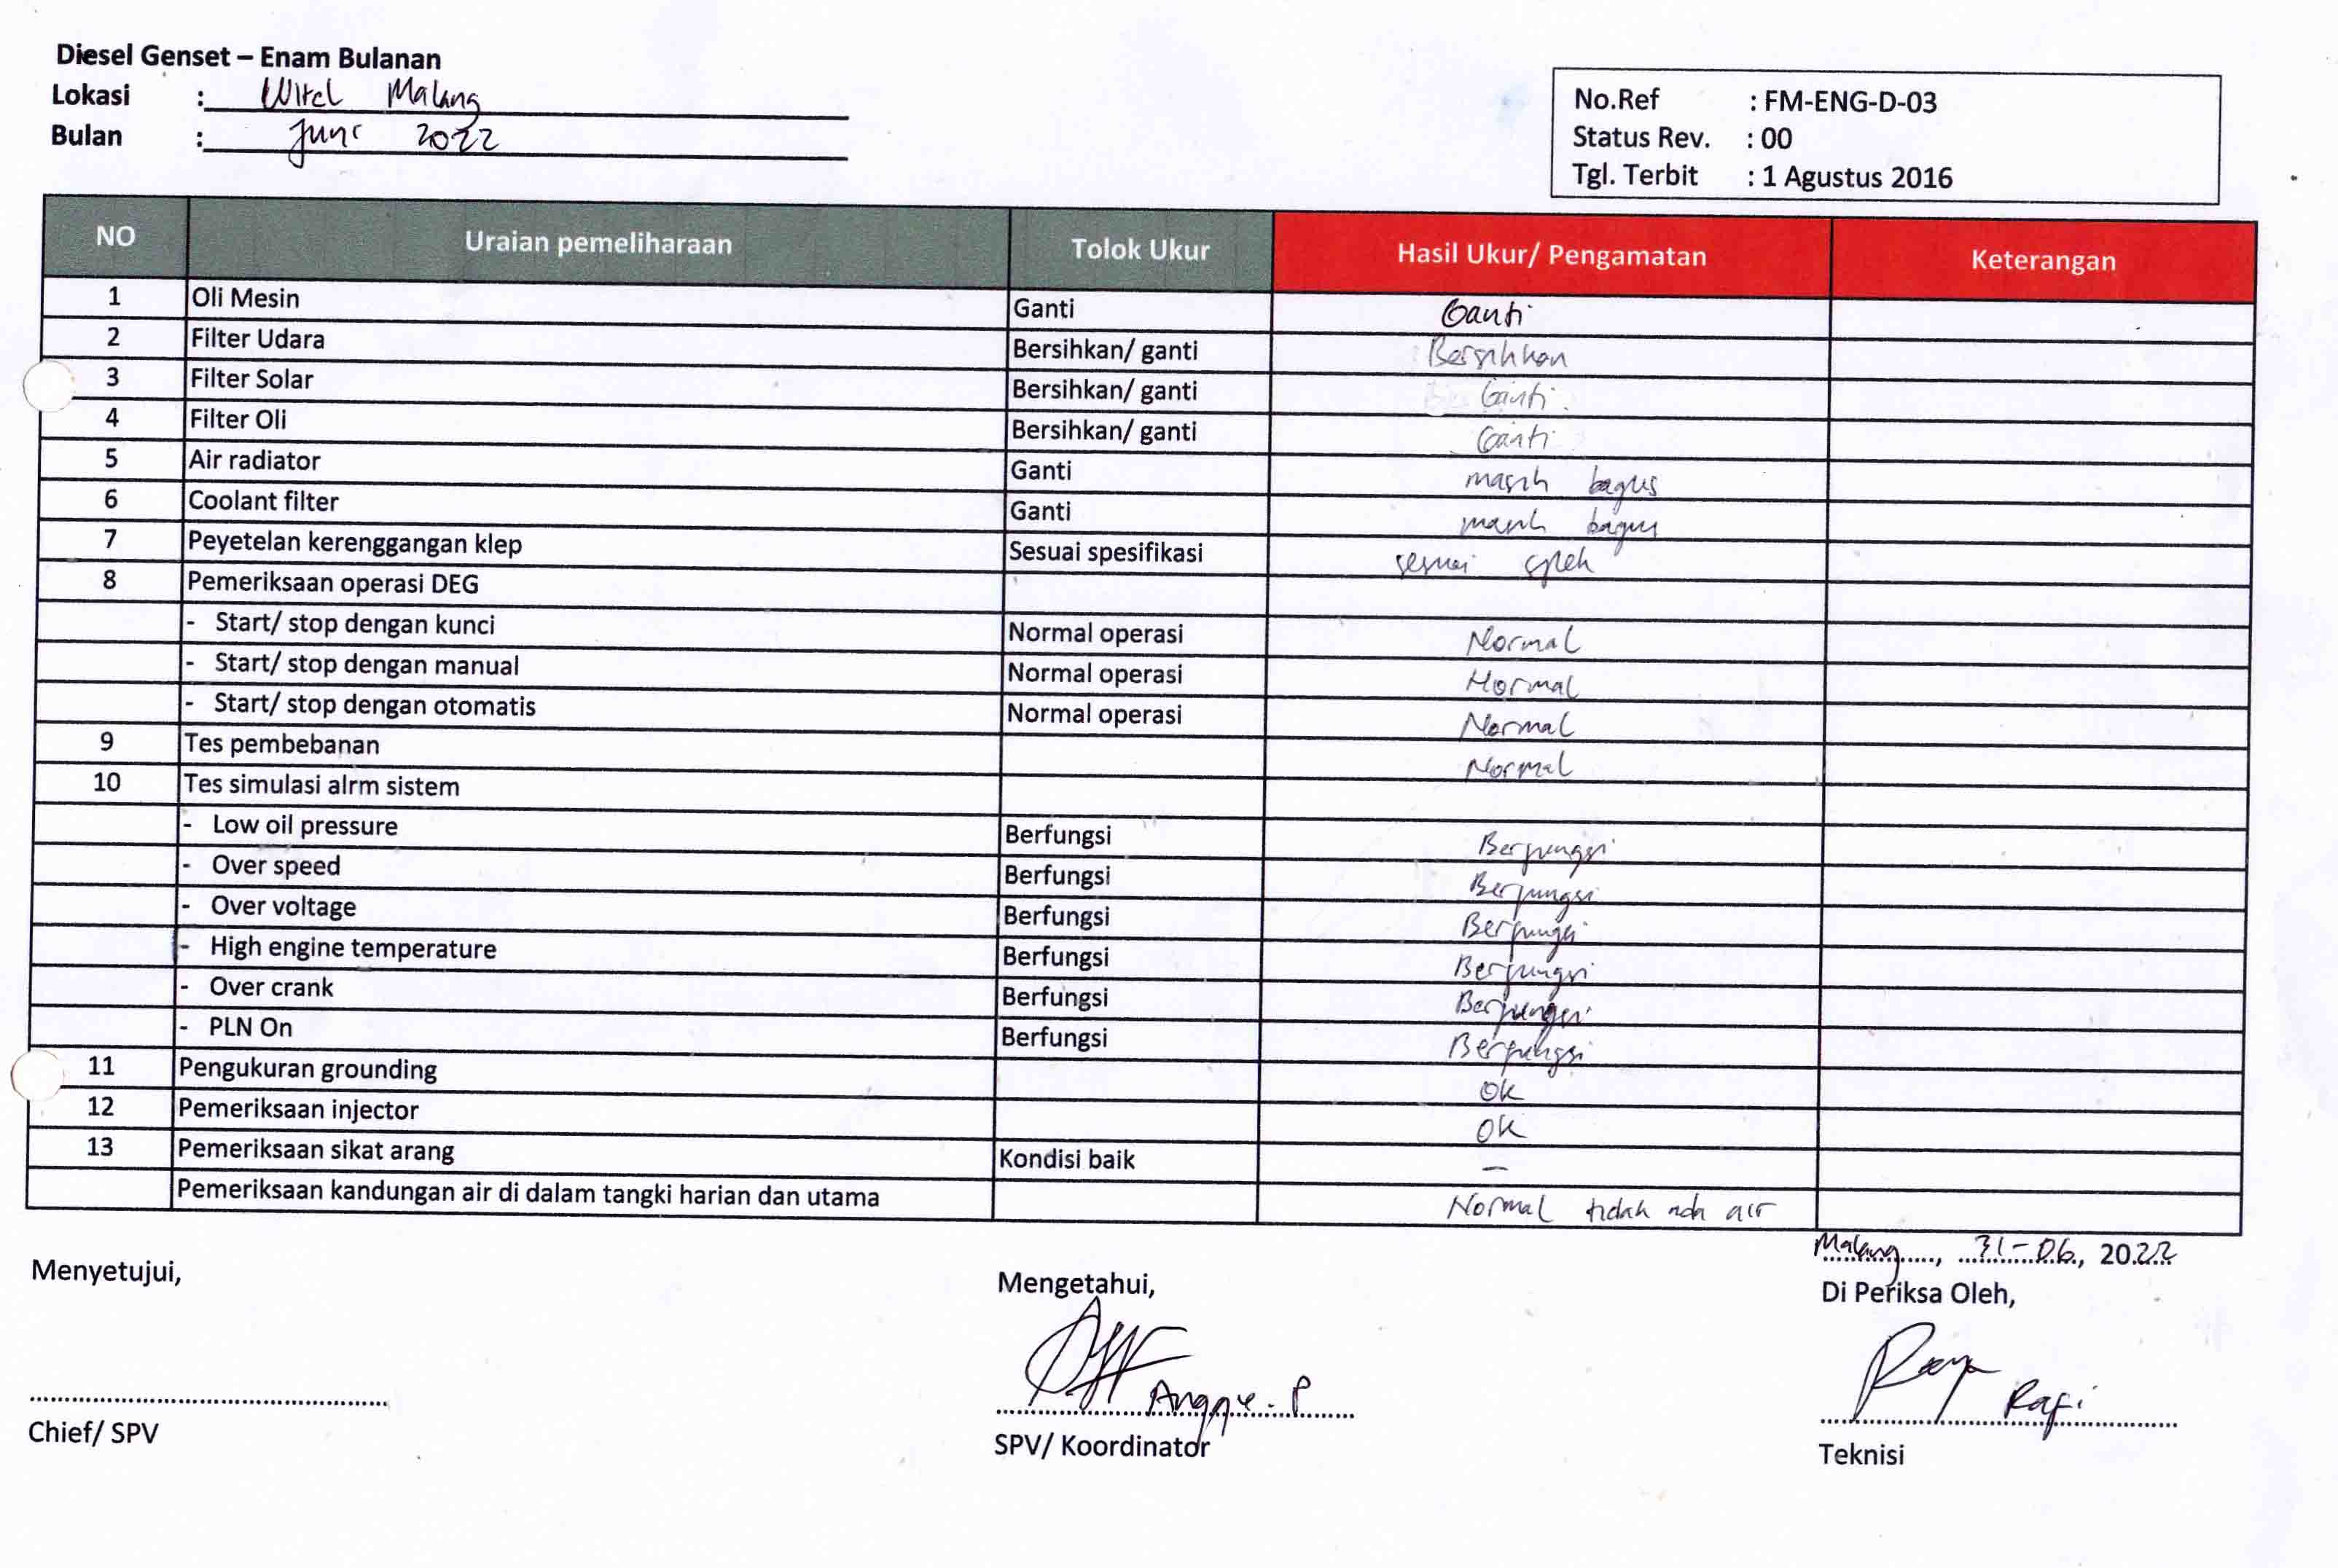 Diesel Genset – Enam Bulanan
Lokasi : Witel Malang
Bulan : Juni 2022
No.Ref : FM-ENG-D-03
Status Rev. : 00
Tgl. Terbit : 1 Agustus 2016
NO Uraian pemeliharaan Tolok Ukur Hasil Ukur/ Pengamatan Keterangan
1 Oli Mesin Ganti Ganti
2 Filter Udara Bersihkan/ ganti Bersihkan
3 Filter Solar Bersihkan/ ganti Ganti
4 Filter Oli Bersihkan/ ganti Ganti
5 Air radiator Ganti masih bagus
6 Coolant filter Ganti masih bagus
7 Peyetelan kerenggangan klep Sesuai spesifikasi sesuai spek
8 Pemeriksaan operasi DEG
- Start/ stop dengan kunci Normal operasi Normal
- Start/ stop dengan manual Normal operasi Normal
- Start/ stop dengan otomatis Normal operasi Normal
9 Tes pembebanan Normal
10 Tes simulasi alrm sistem
- Low oil pressure Berfungsi Berfungsi
- Over speed Berfungsi Berfungsi
- Over voltage Berfungsi Berfungsi
- High engine temperature Berfungsi Berfungsi
- Over crank Berfungsi Berfungsi
- PLN On Berfungsi Berfungsi
11 Pengukuran grounding OK
12 Pemeriksaan injector OK
13 Pemeriksaan sikat arang Kondisi baik –
Pemeriksaan kandungan air di dalam tangki harian dan utama Normal tidak ada air
Malang, 31-06, 2022
Menyetujui, Mengetahui, Di Periksa Oleh,
Anggye.P Rafi
Chief/ SPV SPV/ Koordinator Teknisi